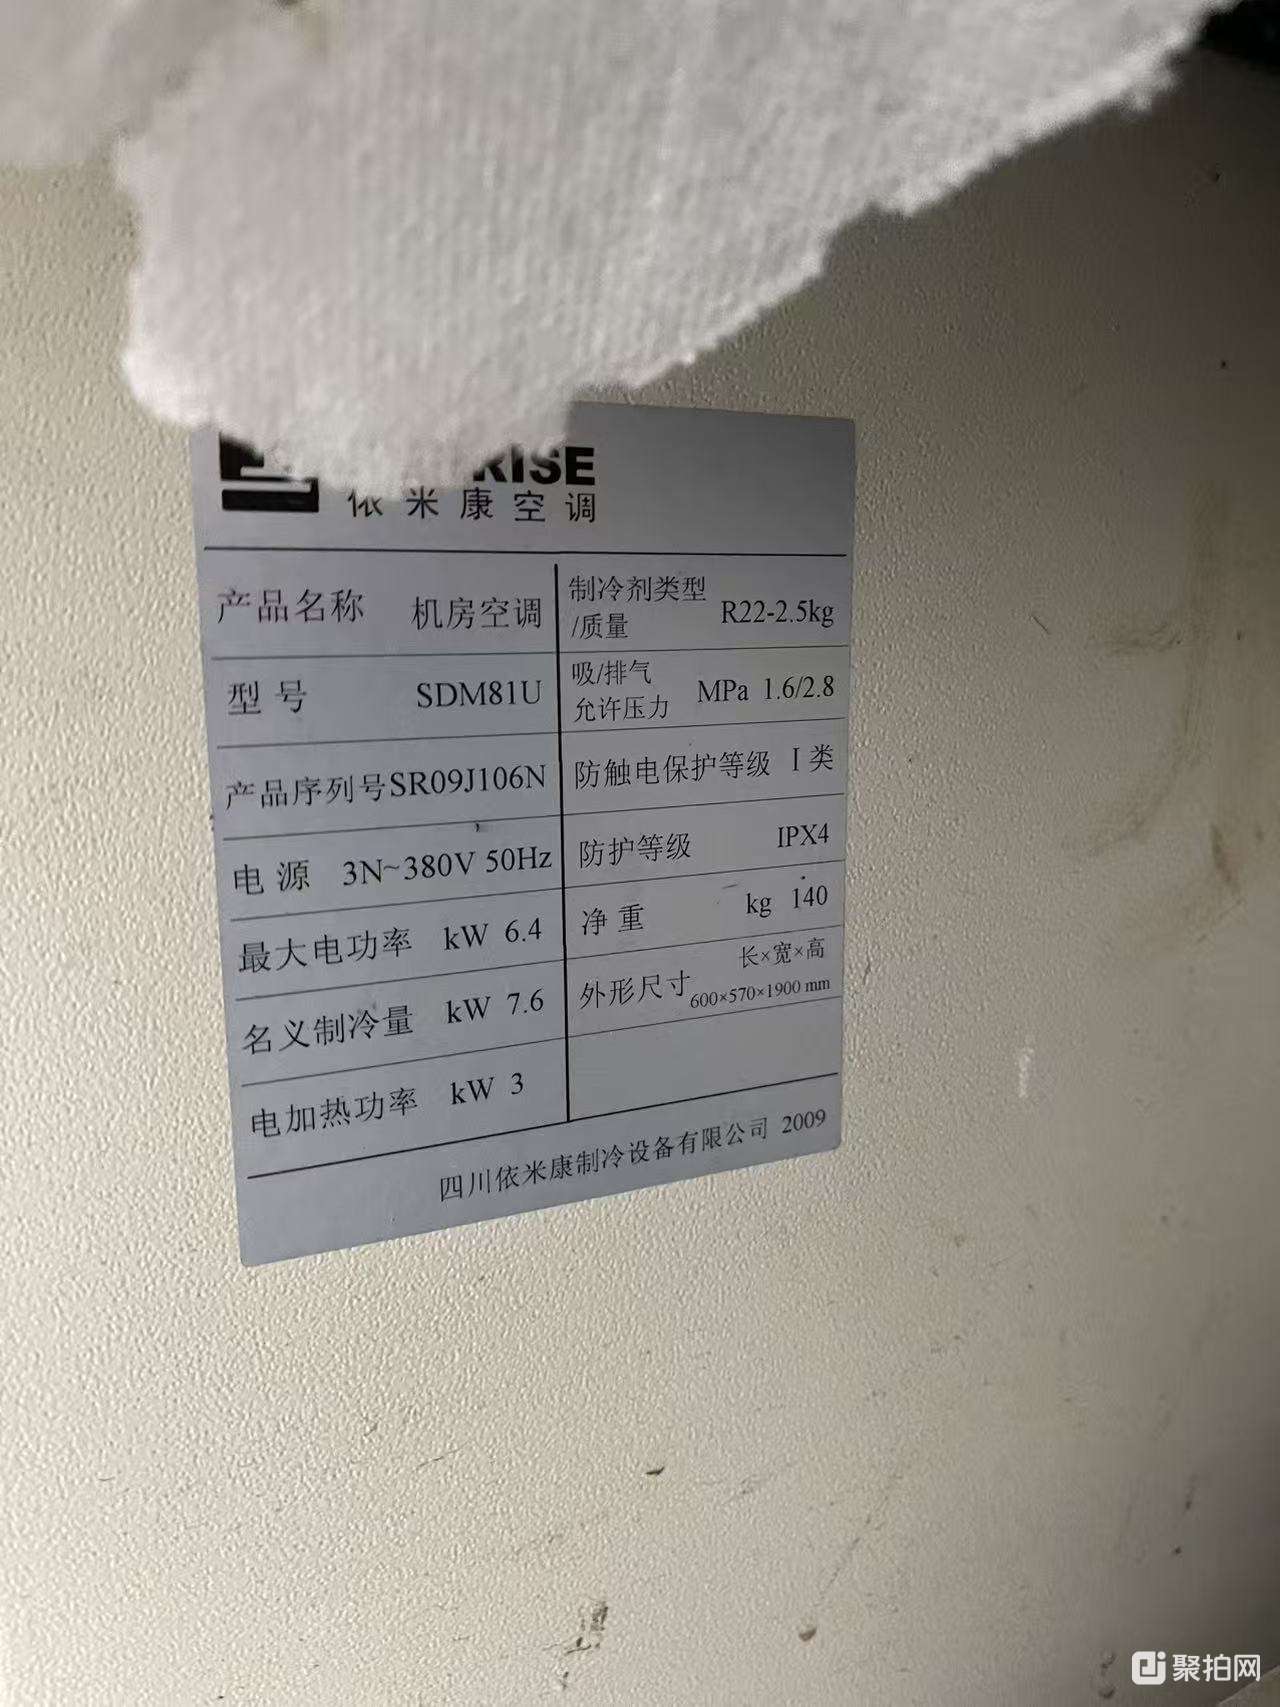 RISE
依米康空调
产品名称 机房空调
型号 SDM81U
产品序列号 SR09J106N
电源 3N~380V 50Hz
最大电功率 kW 6.4
名义制冷量 kW 7.6
电加热功率 kW 3
制冷剂类型
/质量 R22-2.5kg
吸/排气
允许压力 MPa 1.6/2.8
防触电保护等级 I 类
防护等级 IPX4
净重 kg 140
长×宽×高
外形尺寸 600×570×1900 mm
四川依米康制冷设备有限公司 2009
聚拍网